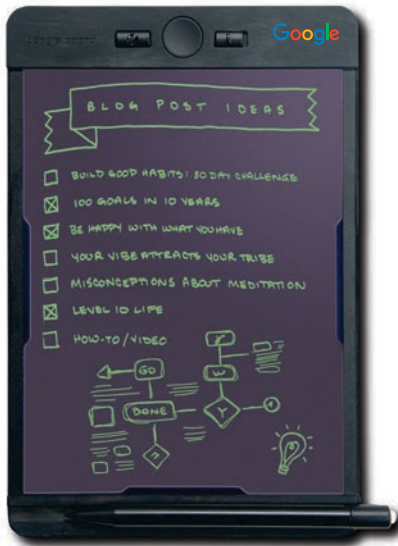 Google
BLOG POST IDEAS
BUILD GOOD HABITS: 30 DAY CHALLENGE
100 GOALS IN 10 YEARS
BE HAPPY WITH WHAT YOU HAVE
YOUR VIBE ATTRACTS YOUR TRIBE
MISCONCEPTIONS ABOUT MEDITATION
LEVEL 10 LIFE
HOW-TO/VIDEO
GO
W
DONE
Y